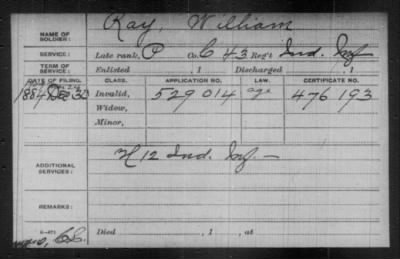 Ray, William
NAME OF SOLDIER:
SERVICE: Late rank, P Co. C 43 Reg't Ind. Inf
TERM OF SERVICE: Enlisted , 1 Discharged , 1
DATE OF FILING. CLASS. APPLICATION NO. LAW. CERTIFICATE NO.
1884 Dec 30 Invalid, 529 014 age 476 193
Widow,
Minor,
ADDITIONAL SERVICES: H 12 Ind. Inf. —
REMARKS:
Died , 1 , at